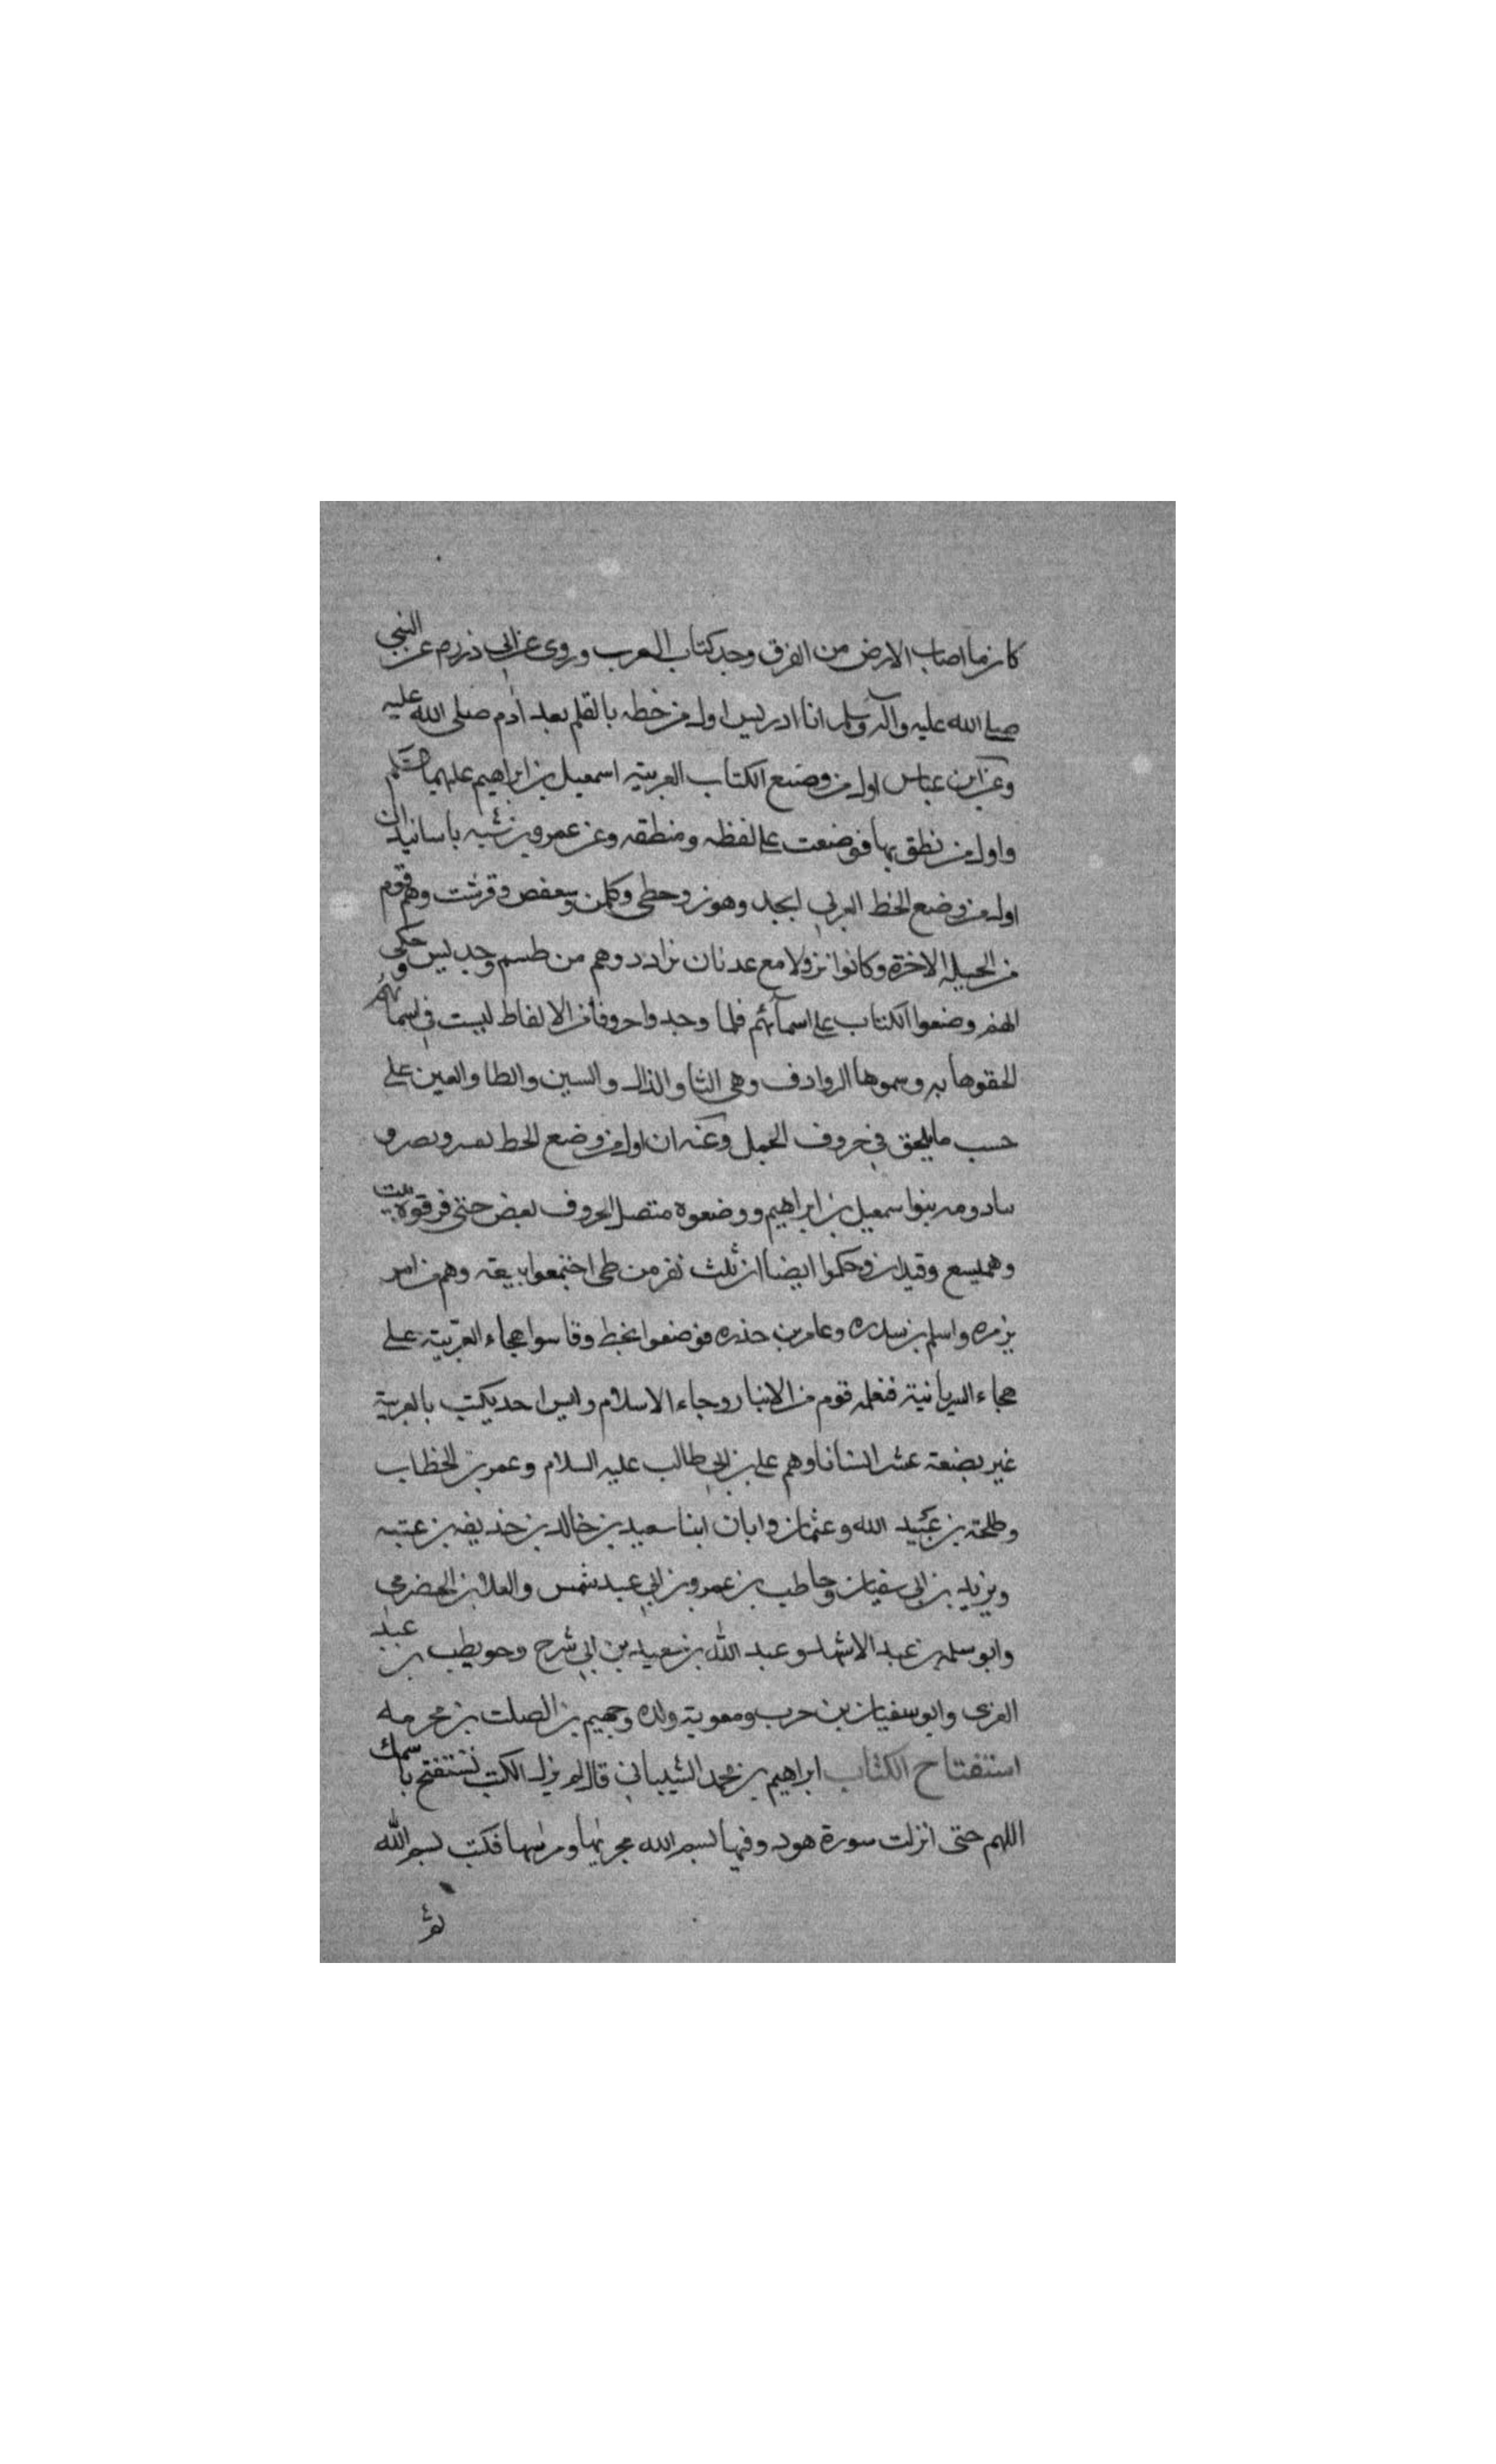 كان زما اصاب الارض من الغرق وجد كتاب العرب وروى عن ابي ذر رم عن النبي
صلى الله عليه وآله وسلم انا ادريس اول من خطه بالقلم بعد آدم صلى الله عليه
وعن ابن عباس اول من وضع الكتاب العربية اسمعيل بن ابراهيم عليهما
واول من نطق بها فوضعت على لفظه ومنطقه وعن عمرو بن شبه باسانيد ان
اول من وضع الخط العربي ابجد وهوز وحطي وكلمن وسعفص وقرشت وهم قوم
من الجبلة الاخرة وكانوا نزولا مع عدنان بن ادد وهم من طسم وجديس وحكى
انهم وضعوا الكتاب على اسمائهم فلما وجدوا حروفا من الالفاط ليست في اسمائهم
الحقوها به وسموها الروادف وهي الثا والذال والسين والطا والعين على
حسب ما يلحق في حروف الجمل وعنه ان اول من وضع الخط نفس ونصر و
ساد ومه بنوا سمعيل بن ابراهيم ووضعوه متصل الحروف بعض حتى فرقوه
وهميسع وقيدار وحكموا ايضا ان ثلث نفر من طي اجتمعوا ببيقة وهم مرامر
بن مره واسلم بن سدره وعامر بن حذره فوضعوا بخط وقاسوا هجاء العربية على
هجاء السريانية فتعلمه قوم من الانبار وجاء الاسلام وليس احد يكتب بالعربية
غير بضعة عشر انسانا وهم على بن ابي طالب عليه السلام وعمر بن الخطاب
وطلحة بن عبيد الله وعثمان وابان ابنا سعيد بن خالد بن حذيفه بن عتبه
ويزيد بن ابي سفيان وحاطب بن عمرو بن ابي عبد شمس والعلا بن الحضرمي
وابو سلمه بن عبد الاشهل وعبد الله بن سعيد بن ابي شرح وحويطب بن عبد
العزى وابو سفيان بن حرب ومعوية ولده وجهيم بن الصلت بن مخرمه
استفتاح الكتاب ابراهيم بن محمد الشيباني قال لم يزل الكتب تستفتح باسمك
اللهم حتى انزلت سورة هود وفيها بسم الله مجريها ومرسها فكتب بسم الله